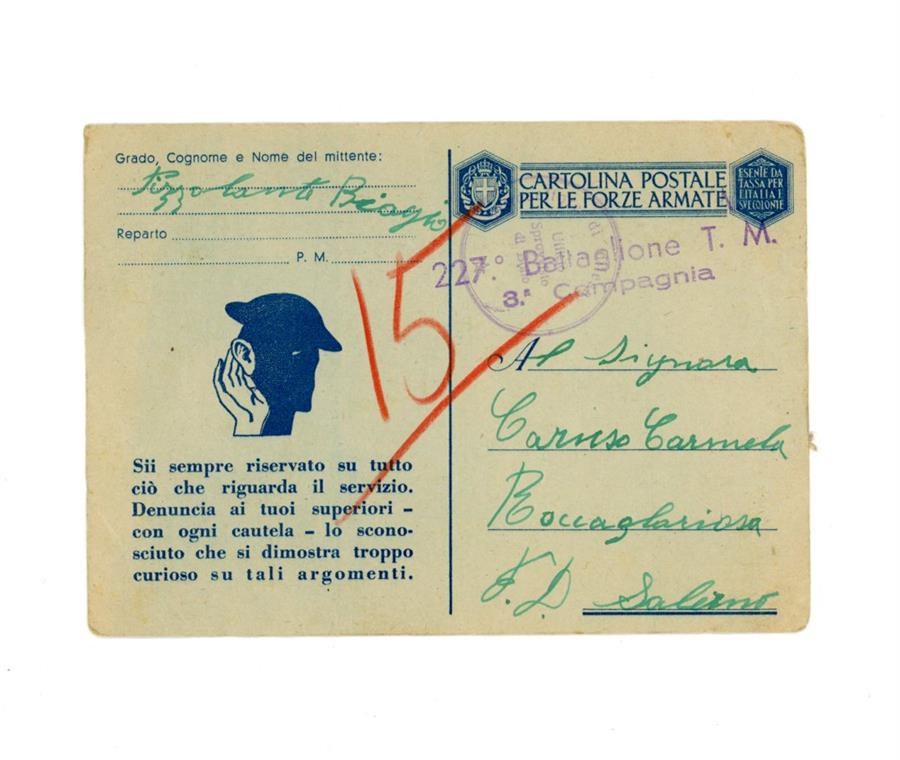 Grado, Cognome e Nome del mittente:
Pizzolanti Biagio
Reparto
P. M.
Sii sempre riservato su tutto
ciò che riguarda il servizio.
Denuncia ai tuoi superiori -
con ogni cautela - lo scono-
sciuto che si dimostra troppo
curioso su tali argomenti.
15
CARTOLINA POSTALE
PER LE FORZE ARMATE
ESENTE DA
TASSA PER
L'ITALIA E
SUE COLONIE
227.° Battaglione T. M.
3.ª Compagnia
Al Signora
Caruso Carmela
Roccaglariosa
F. D. Salerno